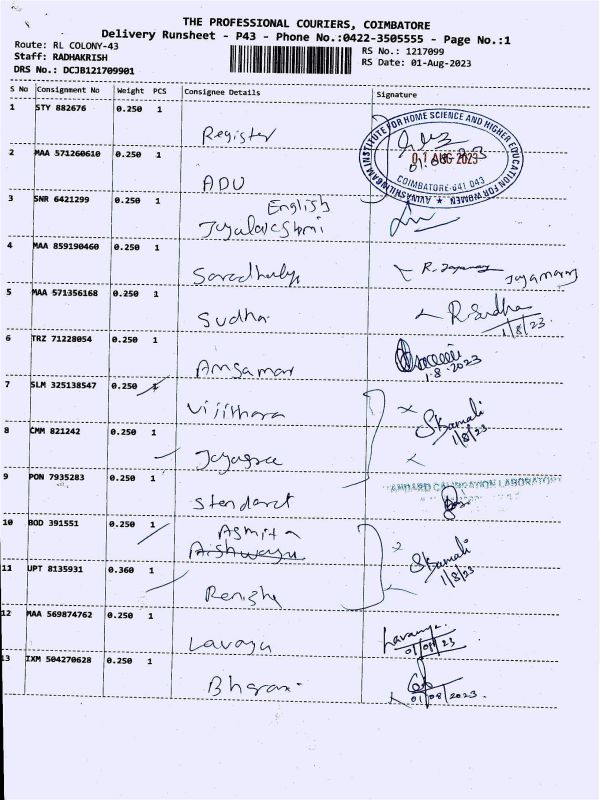 THE PROFESSIONAL COURIERS, COIMBATORE
Delivery Runsheet - P43 - Phone No.:0422-3505555 - Page No.:1
Route: RL COLONY-43
Staff: RADHAKRISH
DRS No.: DCJB121709901
RS No.: 1217099
RS Date: 01-Aug-2023
S No Consignment No Weight PCS Consignee Details Signature
1 STY 882676 0.250 1
Register
AVINASHILINGAM INSTITUTE FOR HOME SCIENCE AND HIGHER EDUCATION FOR WOMEN
01 AUG 2023
COIMBATORE-641 043
2 MAA 571260610 0.250 1
ADU
3 SNR 6421299 0.250 1
English
4 MAA 859190460 0.250 1
5 MAA 571356168 0.250 1
Sudha R.Sudha
1/8/23
6 TRZ 71228054 0.250 1
1.8.2023
7 SLM 325138547 0.250 1
S Kamali
1/8/23
8 CMM 821242 0.250 1
9 PON 7935283 0.250 1
10 BOD 391551 0.250 1
Asmita
Aishwarya
S Kamali
1/8/23
11 UPT 8135931 0.360 1
12 MAA 569874762 0.250 1
Lavanya
01/08/23
13 IXM 504270628 0.250 1
01/08/2023.